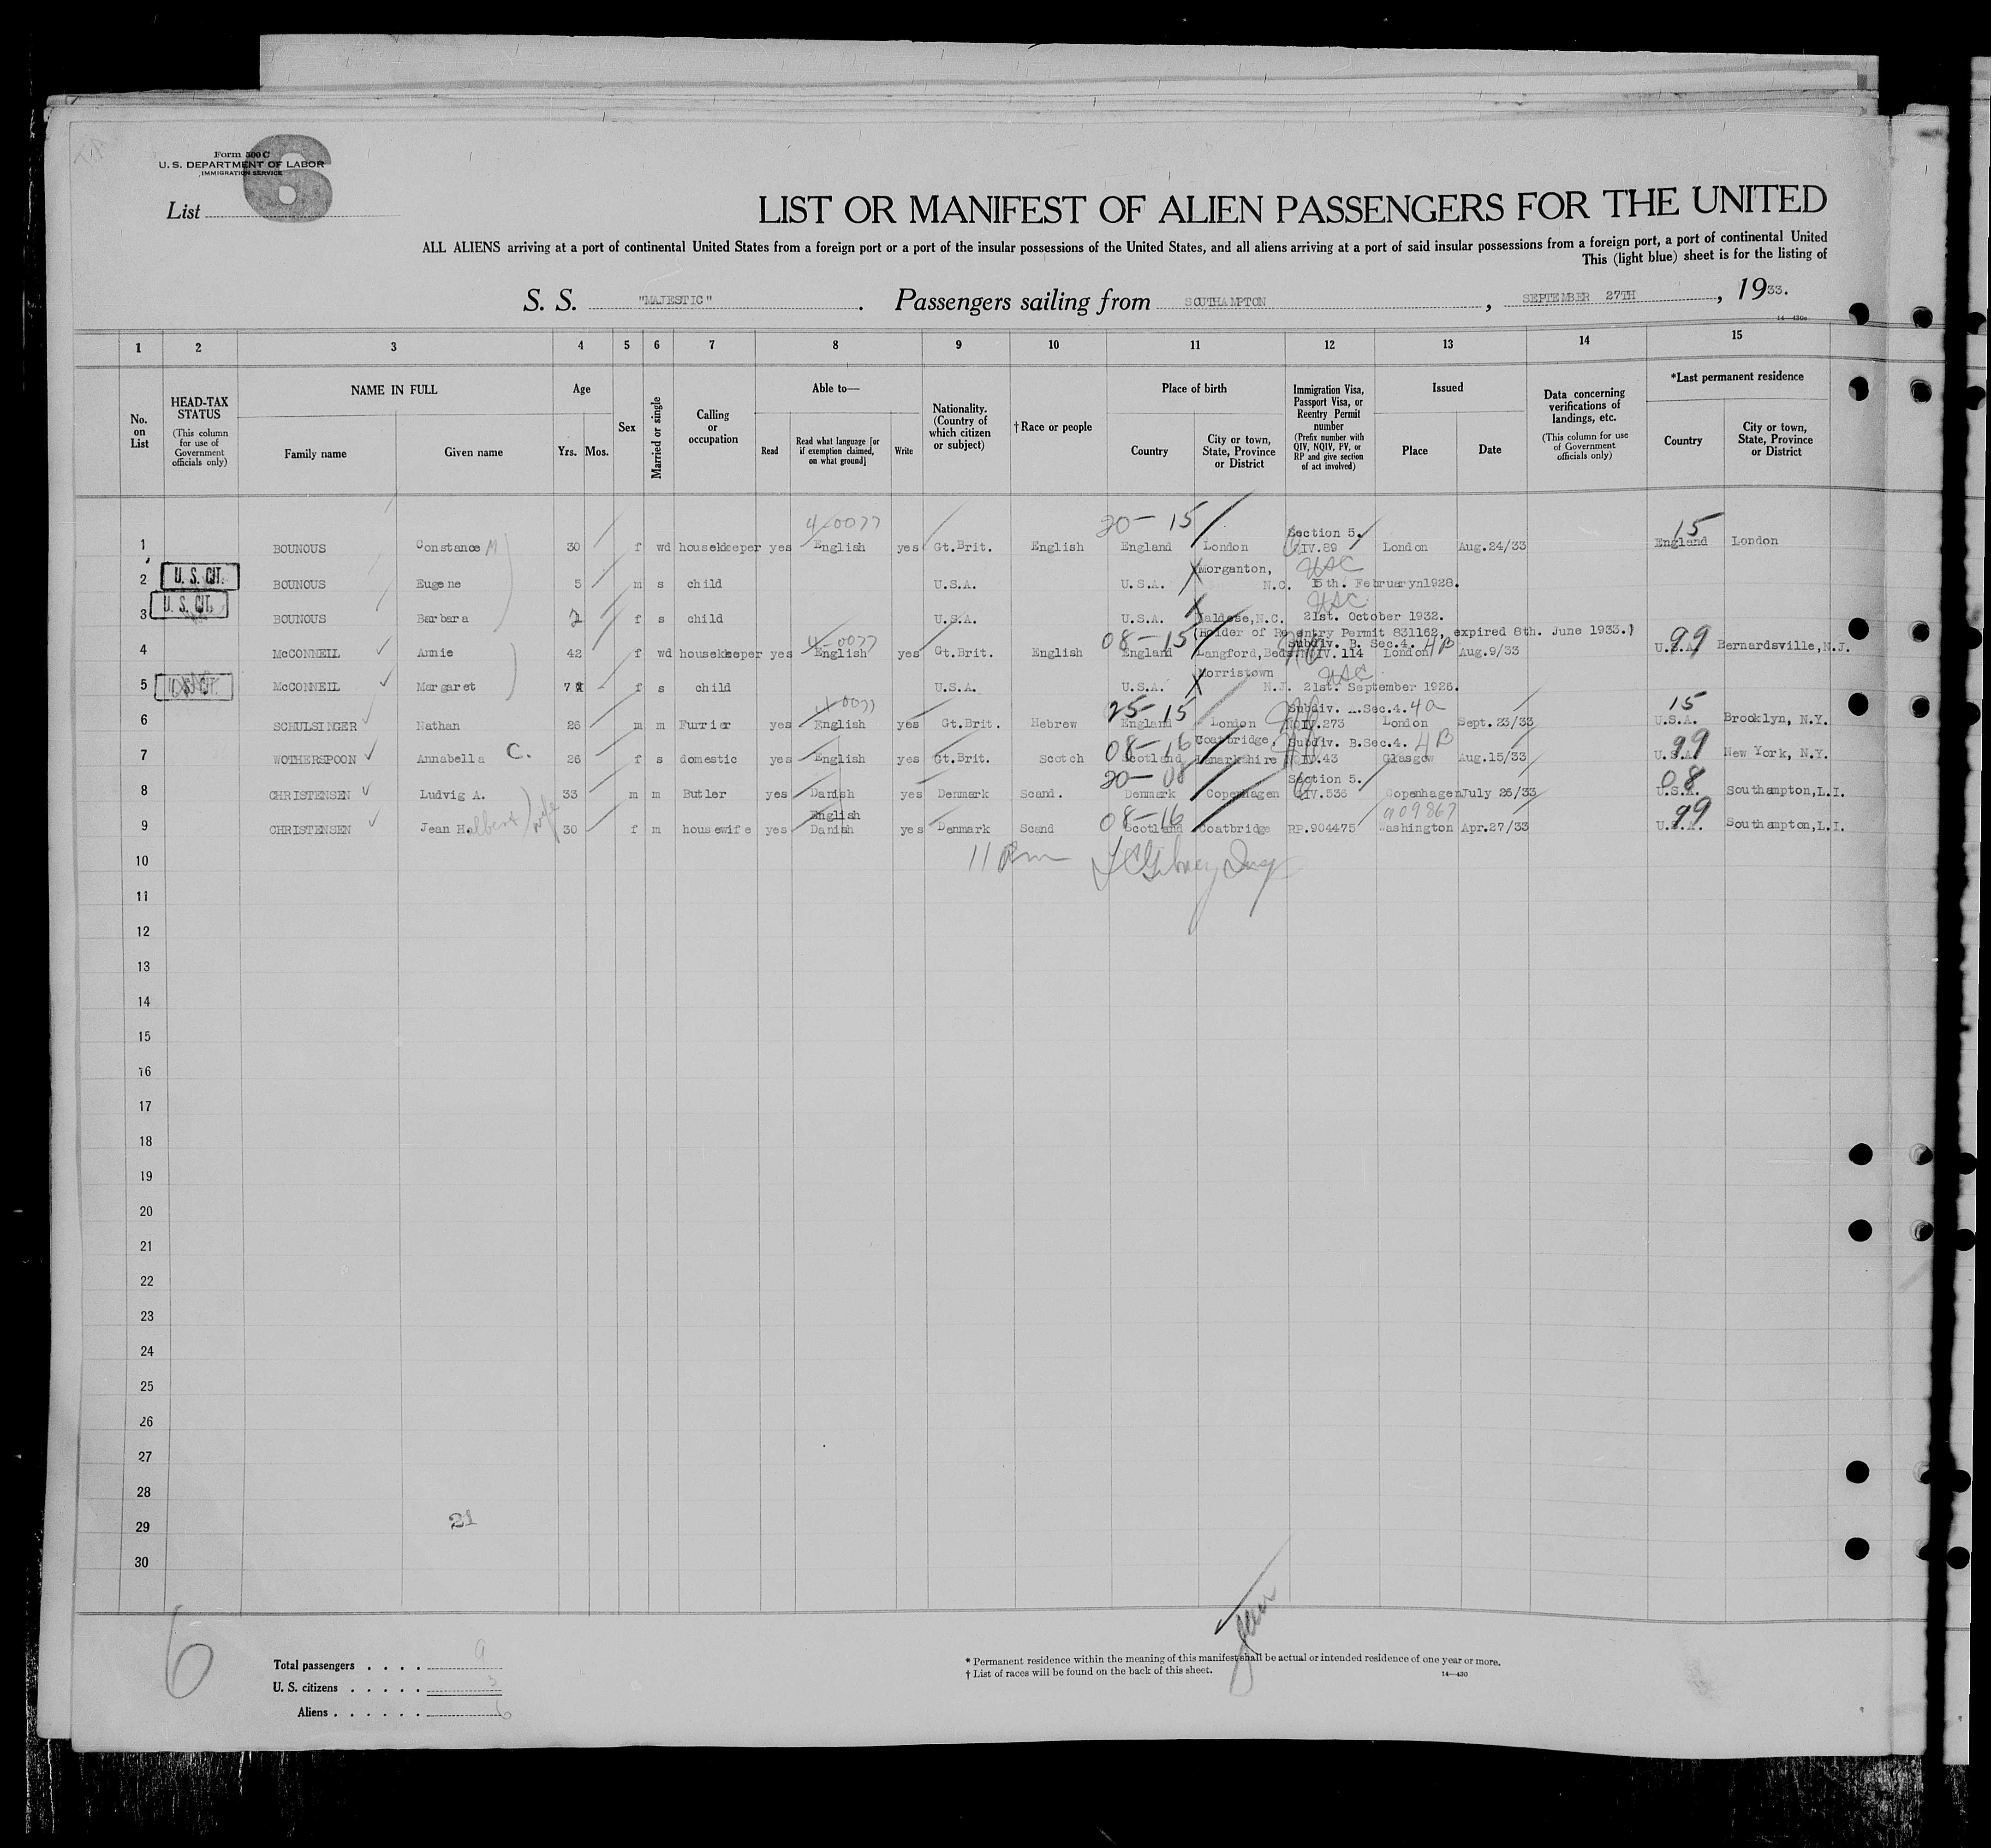 Form 500 C
U. S. DEPARTMENT OF LABOR
IMMIGRATION SERVICE
6
List
LIST OR MANIFEST OF ALIEN PASSENGERS FOR THE UNITED
ALL ALIENS arriving at a port of continental United States from a foreign port or a port of the insular possessions of the United States, and all aliens arriving at a port of said insular possessions from a foreign port, a port of continental United
This (light blue) sheet is for the listing of
S. S. "MAJESTIC". Passengers sailing from SOUTHAMPTON, SEPTEMBER 27TH, 1933.
1 2 3 4 5 6 7 8 9 10 11 12 13 14 15
No. on List
HEAD-TAX STATUS (This column for use of Government officials only)
NAME IN FULL
Family name
Given name
Age
Yrs. Mos.
Sex
Married or single
Calling or occupation
Able to—
Read
Read what language [or if exemption claimed, on what ground]
Write
Nationality. (Country of which citizen or subject)
†Race or people
Place of birth
Country
City or town, State, Province or District
Immigration Visa, Passport Visa, or Reentry Permit number (Prefix number with QIV, NQIV, PV, or RP and give section of act involved)
Issued
Place
Date
Data concerning verifications of landings, etc. (This column for use of Government officials only)
*Last permanent residence
Country
City or town, State, Province or District
4-0077 20-15 Section 5. 15
1 BOUNOUS Constance M 30 f wd housekeeper yes English yes Gt.Brit. English England London QIV.89 London Aug.24/33 England London
Morganton, USC
2 U. S. CIT. BOUNOUS Eugene 5 m s child U.S.A. U.S.A. N.C. 15th. Februaryn1928.
USC
3 U. S. CIT. BOUNOUS Barbara 2 f s child U.S.A. U.S.A. Valdese,N.C. 21st. October 1932.
(Holder of Re entry Permit 831162, expired 8th. June 1933.)
4-0077 08-15 Subdiv. B. Sec.4. 4B 99
4 McCONNEIL Annie 42 f wd housekeeper yes English yes Gt.Brit. English England Langford,Beds NQIV. 114 London Aug.9/33 U.S.A. Bernardsville,N.J.
Morristown USC
5 U. S. CIT. McCONNEIL Margaret 7 f s child U.S.A. U.S.A. N.J. 21st. September 1926.
4-0077 25-15 Subdiv. A.Sec.4. 4a 15
6 SCHULSINGER Nathan 26 m m Furrier yes English yes Gt.Brit. Hebrew England London NQIV.273 London Sept.23/33 U.S.A. Brooklyn, N.Y.
08-16 Coatbridge, Subdiv. B.Sec.4. 4B 99
7 WOTHERSPOON Annabella C. 26 f s domestic yes English yes Gt.Brit. Scotch Scotland Lanarkshire NQIV.43 Glasgow Aug.15/33 U.S.A. New York, N.Y.
20-08 Section 5. 08
8 CHRISTENSEN Ludvig A. 33 m m Butler yes Danish yes Denmark Scand. Denmark Copenhagen QIV.536 Copenhagen July 26/33 U.S.A. Southampton,L.I.
English 08-16 909867 99
9 CHRISTENSEN Jean Halbert wife 30 f m housewife yes Danish yes Denmark Scand Scotland Coatbridge RP.904475 Washington Apr.27/33 U.S.A. Southampton,L.I.
10
11
12
13
14
15
16
17
18
19
20
21
22
23
24
25
26
27
28
29 21
30
6
Total passengers . . . . 9
U. S. citizens . . . . . 3
Aliens . . . . . . 6
* Permanent residence within the meaning of this manifest shall be actual or intended residence of one year or more.
† List of races will be found on the back of this sheet.
14—430